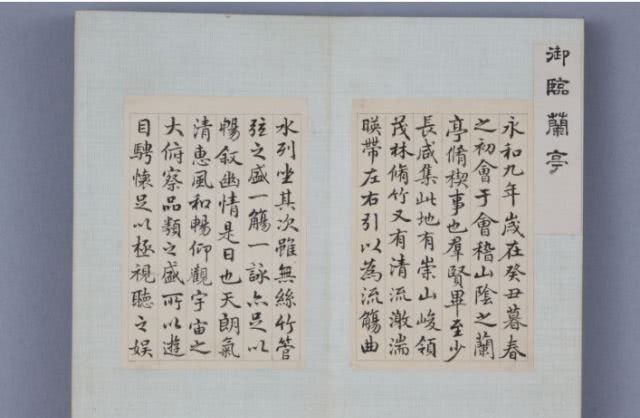 御臨蘭亭
永和九年歲在癸丑暮春
之初會于會稽山陰之蘭
亭脩稧事也羣賢畢至少
長咸集此地有崇山峻領
茂林脩竹又有清流激湍
暎帶左右引以為流觴曲
水列坐其次雖無絲竹管
弦之盛一觴一詠亦足以
暢敘幽情是日也天朗氣
清惠風和暢仰觀宇宙之
大俯察品類之盛所以遊
目騁懷足以極視聽之娛